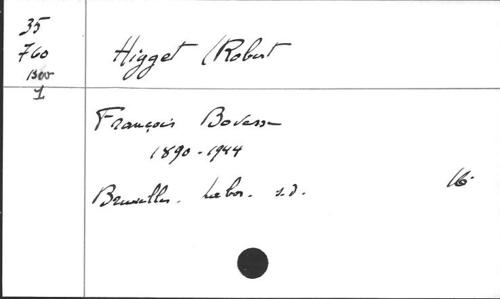 35
760
Bov
1
Higget (Robert
François Bovesse
1890-1944
Bruxelles. Labor. s.d.
16.